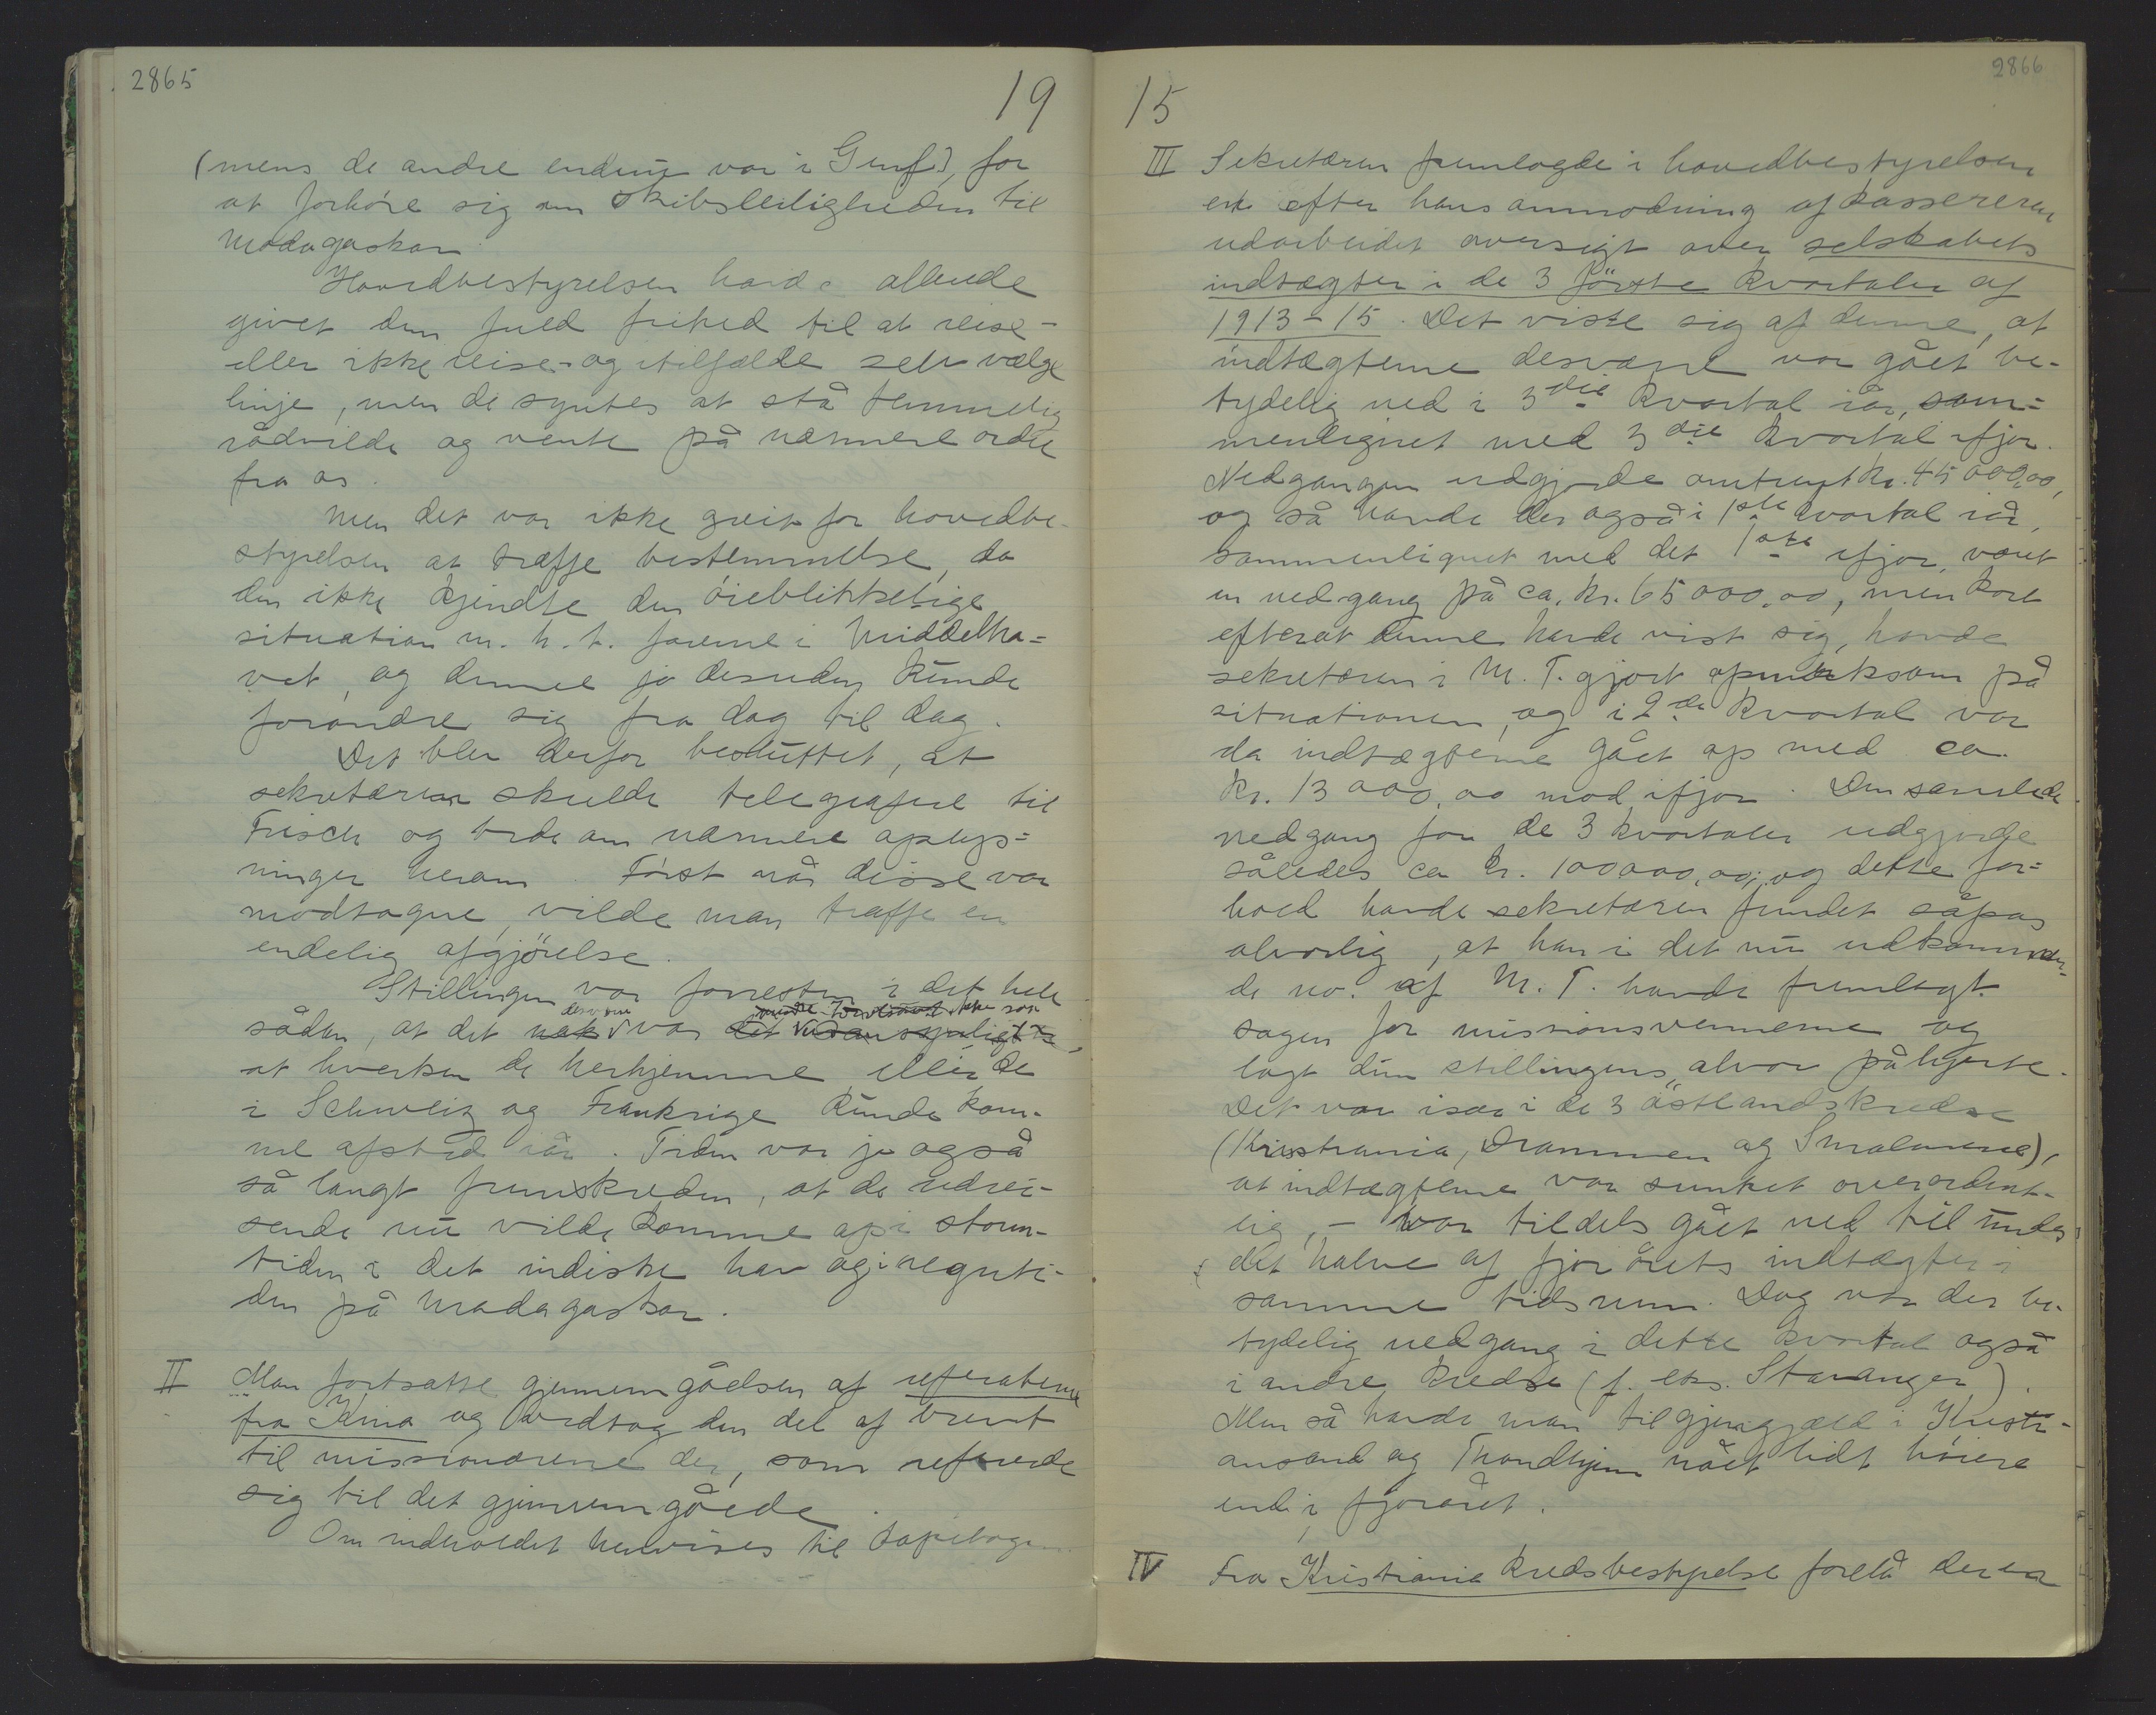 2865
19
(mens de andre endnu var i Genf), for
at forhöre sig om skibsleiligheden til
Madagaskar.
Hovedbestyrelsen havde allerede
givet dem fuld frihed til at reise -
eller ikke reise - og itilfælde selv vælge
linje, men de syntes at stå temmelig
rådvilde og vente på nærmere ordre
fra os.
Men det var ikke greit for hovedbe-
styrelsen at træffe bestemmelse, da
den ikke kjendte den öieblikkelige
situation m. h. t. farerne i Middelha=
vet, og denne jo desuden kunde
forandre sig fra dag til dag.
Det blev derfor besluttet, at
sekretæren skulde telegrafere til
Frisch og bede om nærmere oplys=
ninger herom. Först når disse var
modtagne, vilde man træffe en
endelig afgjörelse.
Stillingen var forresten i det hele
desværre ikke så
sådan, at det nok var det
at hverken de herhjemme eller de
i Schweiz og Frankrige kunde kom-
me afsted iår. Tiden var jo også
så langt fremskreden, at de udrei-
sende nu vilde komme op i storm-
tiden i det indiske hav og i regnti-
den på Madagaskar.
II Man fortsatte gjennemgåelsen af referaterne
fra Kina og vedtog den del af brevet
til missionærerne der, som refererede
sig til det gjennemgåede.
Om indholdet henvises til kopibogen.
2866
15
III Sekretæren fremlagde i hovedbestyrelsen
en efter hans anmodning af kassereren
udarbeidet oversigt over selskabets
indtægter i de 3 förste kvartaler af
1913-15. Det viste sig af denne, at
indtægterne desværre var gået be-
tydelig ned i 3die kvartal iår, sam=
menlignet med 3die kvartal ifjor.
Nedgangen udgjorde omtrent kr. 45 000,00,
og så havde der også i 1ste kvartal iår,
sammenlignet med det 1ste ifjor, været
en nedgang på ca. kr. 65 000,00, men kort
efterat denne havde vist sig, havde
sekretæren i M. T. gjort opmerksom på
situationen, og i 2de kvartal var
da indtægterne gået op med ca.
kr. 13 000,00 mod ifjor. Den samlede
nedgang for de 3 kvartaler udgjorde
således ca kr. 100 000,00; og dette for=
hold havde sekretæren fundet såpas
alvorlig, at han i det nu udkommen-
de no. af M. T. havde fremlagt
sagen for missionsvennerne og
lagt dem stillingens alvor på hjerte.
Det var især i de 3 östlandskredse
(Kristiania, Drammen og Smalenene),
at indtægterne var sunket overordent-
lig, - var tildels gået ned til under
det halve af fjorårets indtægter i
samme tidsrum. Dog var der be-
tydelig nedgang i dette kvartal også
i andre kredse (f. eks. Stavanger).
Men så havde man til gjengjæld i Kristi-
ansand og Trondhjem nået lidt höiere
end i fjoråret.
IV Fra Kristiania kredsbestyrelse forelå der en